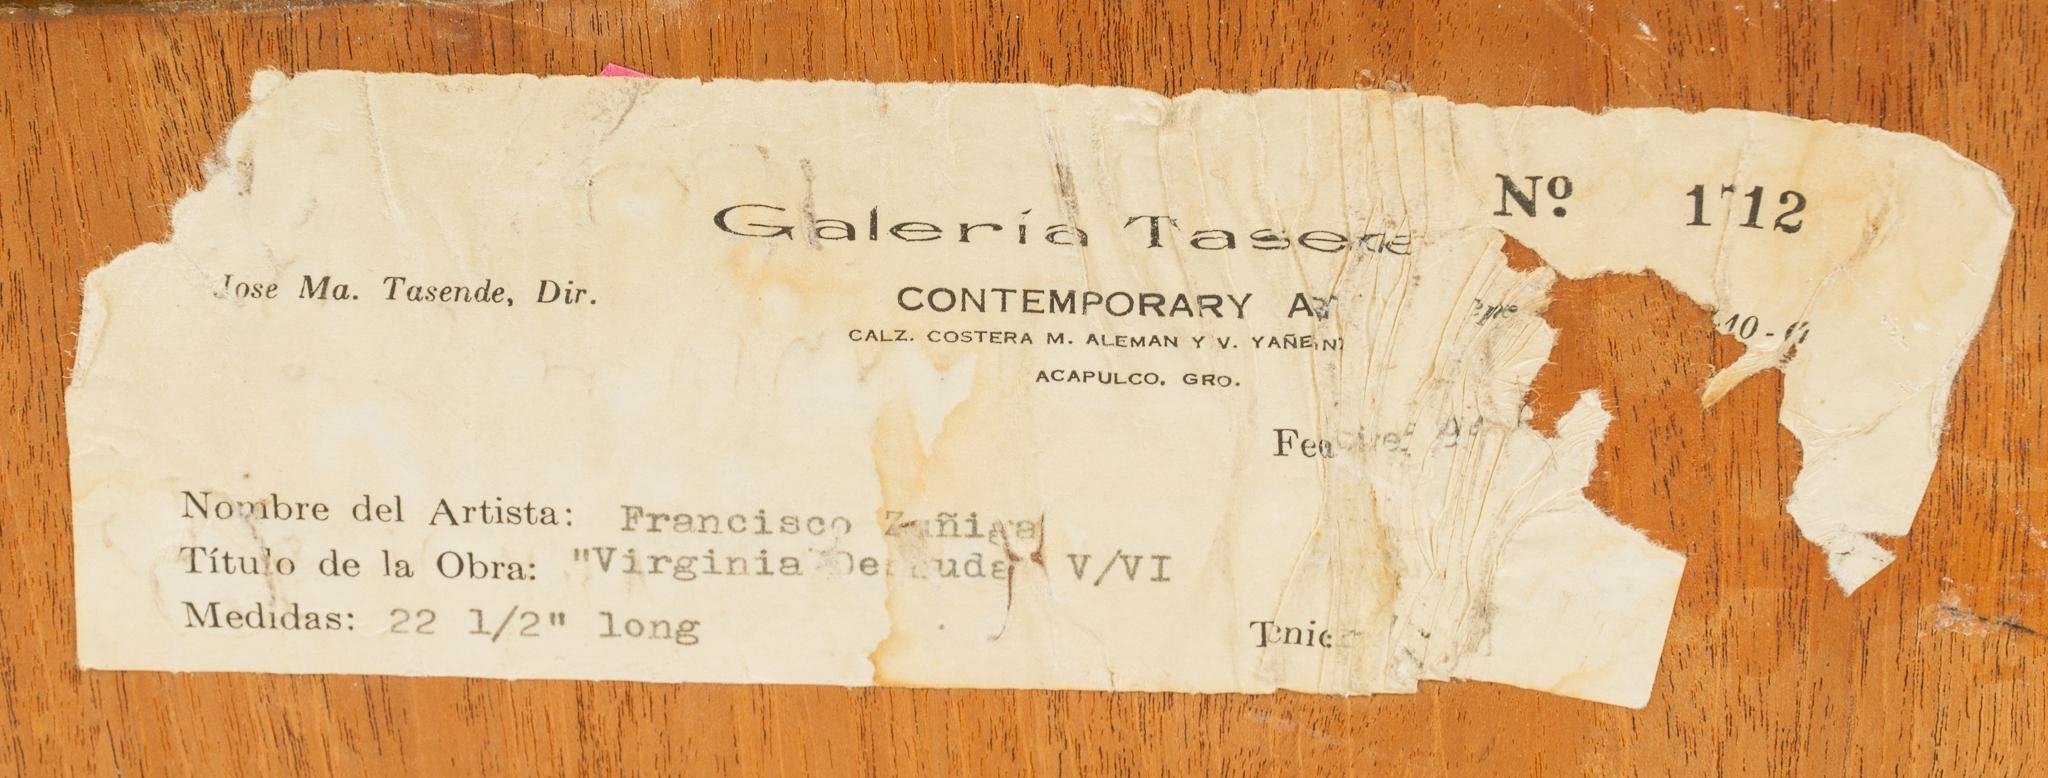 Nº 1712
Galería
Jose Ma. Tasende, Dir.
CONTEMPORARY
CALZ. COSTERA M. ALEMAN Y V. YAÑEZ
ACAPULCO, GRO.
Nombre del Artista: Francisco Zuñiga
Título de la Obra: "Virginia V/VI
Medidas: 22 1/2" long